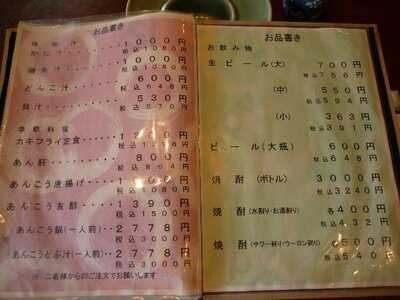 お品書き
1000円
税込1080円
かにう
1000円
税込1080円
汁
600円
どんこ汁
税込648円
530円
貝汁
税込570円
季節料理
カキフライ定食
あん肝
800円
税込864円
あんこう唐揚げ
あんこう友酢
1390円
税込1500円
あんこう鍋(一人前)
2778円
税込3000円
あんこうどぶ汁(一人前)
2778円
税込3000円
二名様からのご注文でお願いします
お品書き
お飲み物
生ビール(大)
700円
税込756円
(中)
550円
税込594円
(小)
363円
税込391円
ビール(大瓶)
600円
税込648円
焼酎(ボトル)
3000円
税込3240円
焼酎(水割り・お湯割り)
各400円
税込432円
焼酎(サワー割り・ウーロン割り)
各500円
税込540円